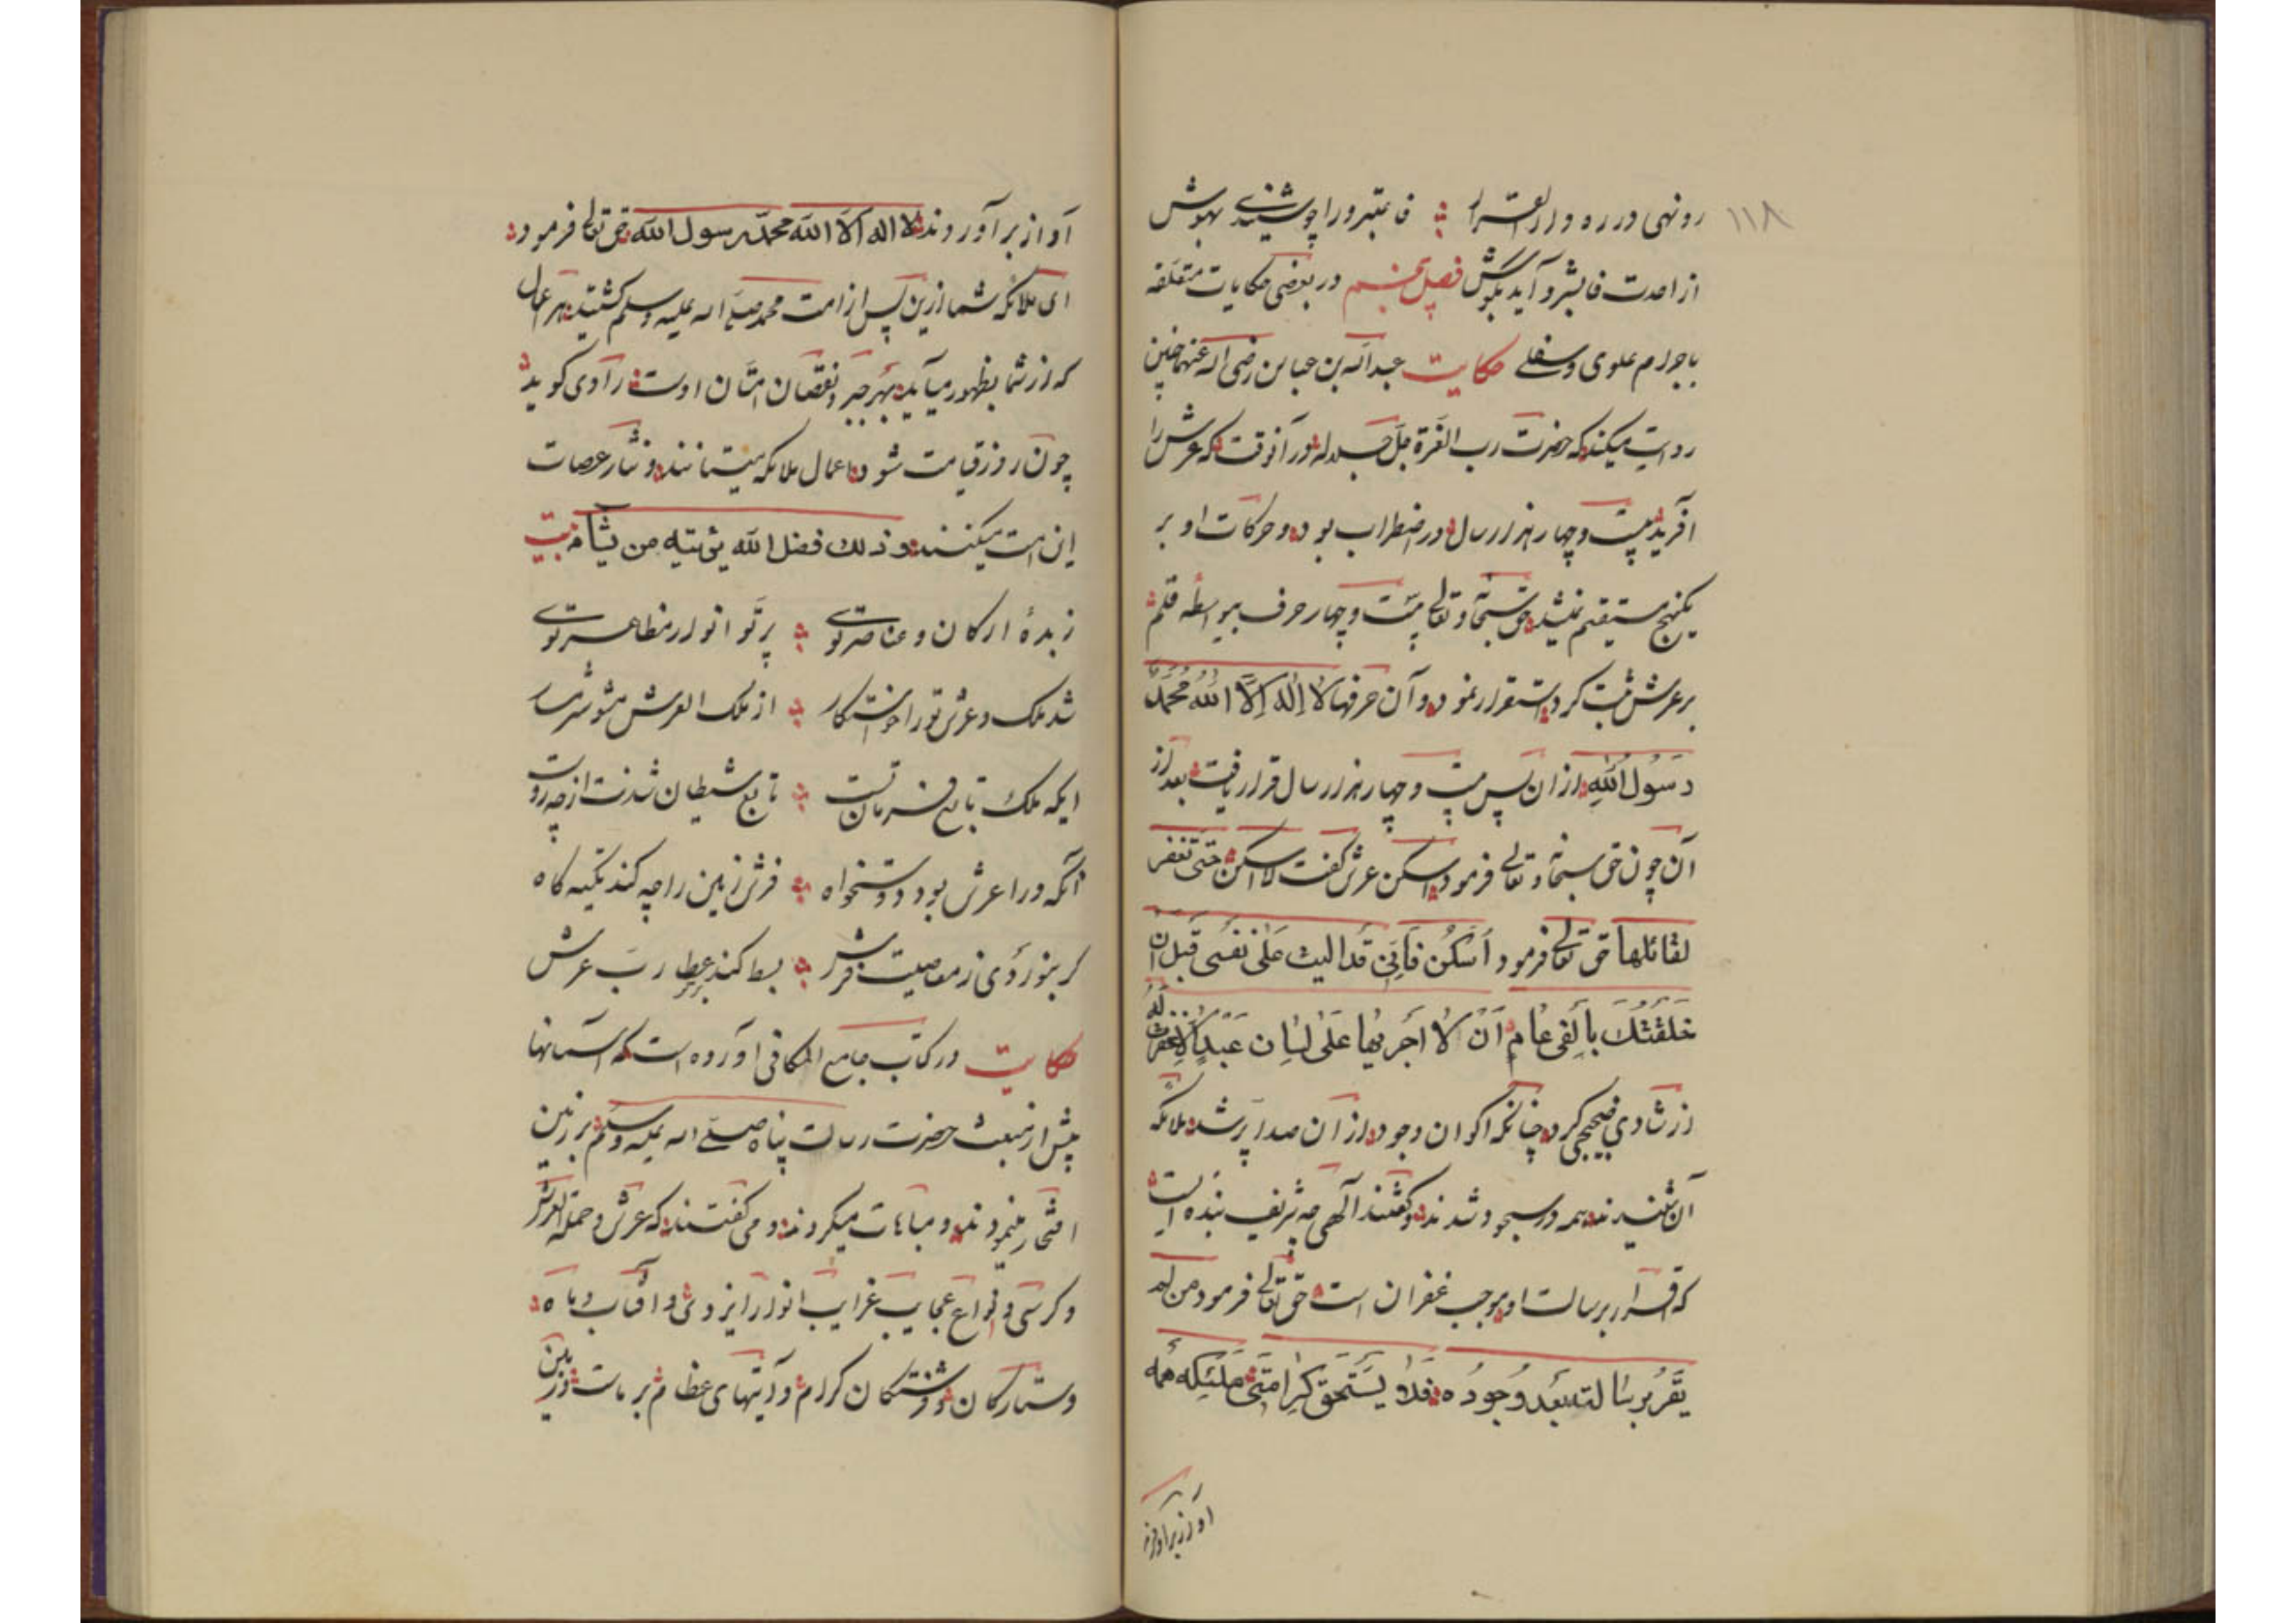 ۱۱۸
رونهی در ره دار القرار فاعتبروا را چو شنیدی بهوش
از احدت فابشروا آید بگوش فصل پنجم در بعضی حکایات متعلقه
باجرام علوی و سفلے حکایت عبد الله بن عباس رضی الله عنهما چنین
روایت میکند که حضرت رب العزة جل جلاله در آنوقت که عرش را
آفرید بیست و چهار هزار سال در اضطراب بود و حرکات او بر
یکنهج مستقیم نمیشد حق سبحانه و تعالی بیست و چهار حرف بیواسطه قلم
بر عرش ثبت کرد استقرار نمود و آن حرفها لَا إِلٰهَ إِلَّا اللهُ مُحَمَّدٌ
رَسُولُ اللهِ از ان پس بیست و چهار هزار سال قرار یافت بعد از
آن چون حق سبحانه و تعالی فرمود اسکن عرش گفت لا اسکن حتی تغفر
لقائلها حق تعالی فرمود اُسْکُن فَاِنّی قد الیت عَلٰی نفسی قبل ان
خَلَقْتُكَ بِأَلْفَی عَام اَنْ لَا اُجْرِیَها عَلٰی لِسَان عَبْدٍ اِلَّا غفرت لَهُ
از شادی ضجیجی کرد چنانکه اکوان وجود از آن صدا پر شد ملائکه
آن شنیدند همه در سجود شدند و گفتند الهی چه شریف بنده است
که اقرار برسالت او موجب غفران است حق تعالی فرمود من لم
یقر برسالته بعد وجوده فلا یستحق کرامتی ملئکه همه
آواز برآوردند
آواز برآوردند لا اله الا الله محمد رسول الله حق تعالی فرمود
ای ملائکه شما ازین پس از امت محمد صلے الله علیه وسلم گشتید هر اعمال
که از شما بظهور میآید بهر جبر نقصان امتان اوست راوی گوید
چون روز قیامت شود اعمال ملائکه میستانند و نثار عصات
این امت میکنند و ذلك فضل الله یؤتیه من یشآء بیت
زبدهٔ ارکان و عناصر توی پرتو انوار مظاهر توی
شد ملک و عرش تو را خواستگار از ملک العرش مشو شرمسار
ایکه ملک تابع فرمان تست تابع شیطان شدنت از چه روست
آنکه ورا عرش بود دوستخواه فرش زمین را چه کند تکیه گاه
گر بنوردی ز معاصیت فرش بسط کند عطر رب عرش
حکایت در کتاب جامع المکافی آورده است که آسمانها
پیش از مبعث حضرت رسالت پناه صلے الله علیه وسلم بر زمین
افتخار مینمودند و مباهات میکردند و می گفتند که عرش و حملة العرش
و کرسی و انواع عجایب غرایب انوار ایزدی و آفتاب و ماه
و ستارگان و فرشتگان کرام و آیتهای عظام بر ماست و زمین